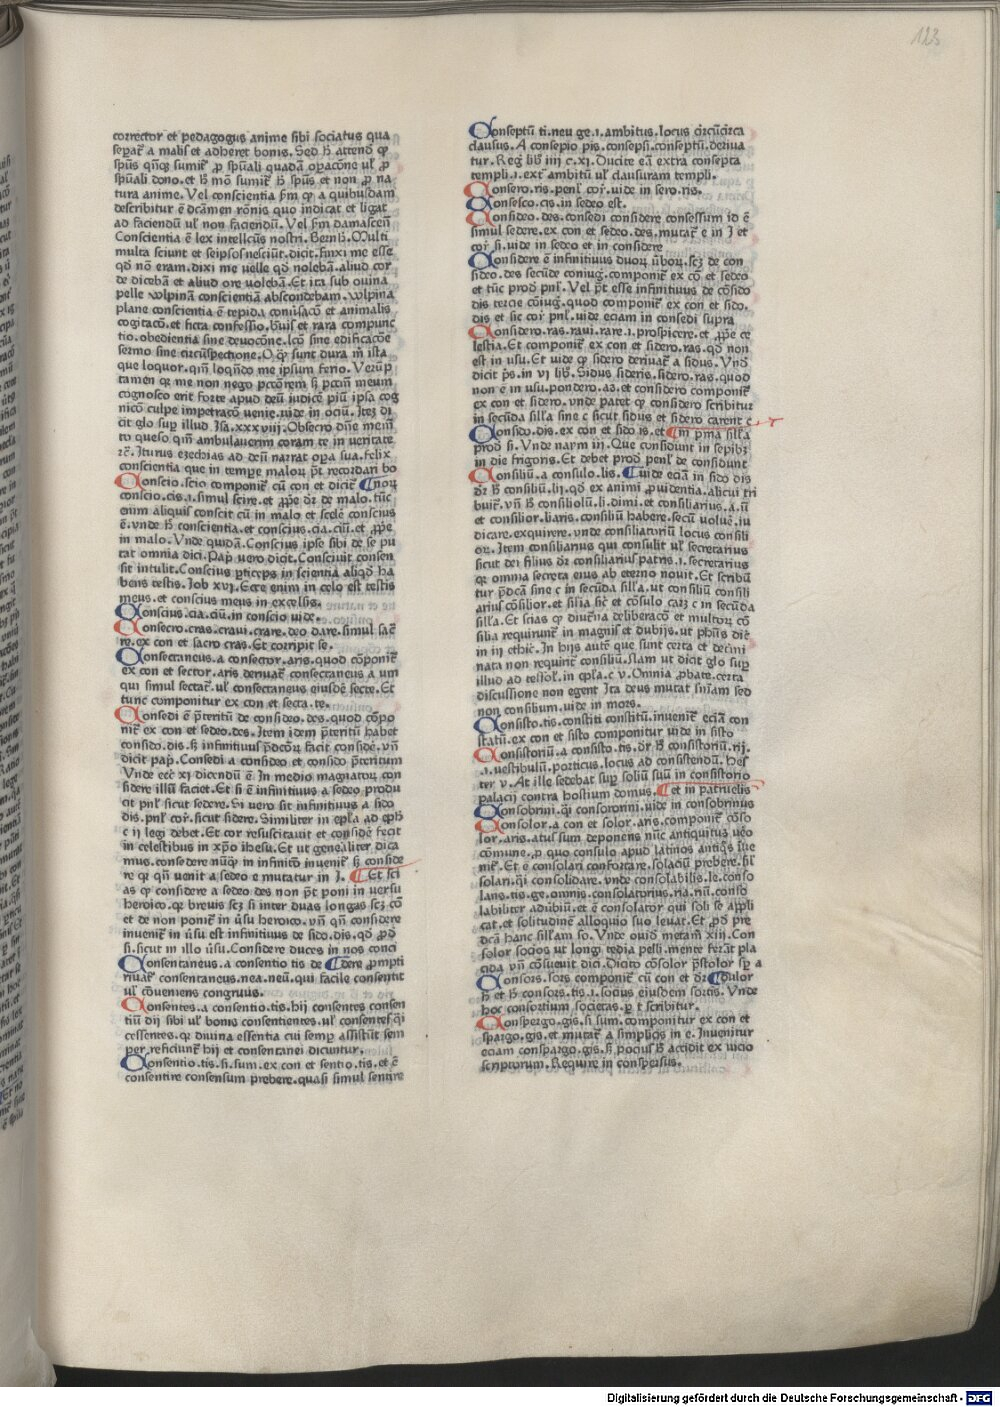 123
corrector et pedagogus anime sibi sociatus qua
sepat᷑ a malis et adheret bonis. Sed h̄ attend̄ ꝙ
sp̄us qn̄qꝫ sumit᷑ ꝓ sp̄uali quadā op̄acōne ul᷑ ꝓ
sp̄uali dono. et h̄ mō sumit᷑ h̄ sp̄us et non ꝓ na
tura anime. Vel conscientia ẜm ꝙ a quibusdam
describitur ē dc̄amen rōnis quo indicat et ligat
ad faciendū ul᷑ non faciendū. Vel ẜm damascen̄
Conscientia ē lex intellc̄us nostri. Bernh̄. Multi
multa sciunt et seipsos nesciūt. dicit. finxi me esse
qd̄ nō eram. dixi me uelle qd̄ nolebā. aliud cor
de dicebā et aliud ore volebā. Et ita sub ouina
pelle wlpinā conscientiā abscondebam. wlpina
plane conscientia ē tepida conūsacō et animalis
cogitacō. et ficta confessio. b̄uis et rara compunc
tio. obedientia sine deuocōne. lcō sine edificacōe
sermo sine circūspectione. O ꝙ̄ sunt dura m̄ ista
que loquor. qm̄ loqn̄do me ipsum ferio. Verūp̄
tamen qꝛ me non nego pcc̄orem sꝫ pcc̄m meum
cognosco erit forte apud deū iudicē piū ipsa cog
nicō culpe impetracō uenie. uide in ociū. Itez di
cit glo suꝑ illud. Isa. xxxviij. Obsecro dn̄e mem̄
to queso qm̄ ambulauerim coram te in ueritate
⁊c̄. Iturus ezechias ad deū narrat oꝑa sua. felix
conscientia que in tempe maloꝝ pt̄ recordari bo
Conscio. scio componit᷑ cū con et dicit᷑ noꝝ
conscio. cis. i. simul scire. et ꝓp̄e dr̄ de malo. tūc
enim aliquis conscit cū in malo et scelē conscius
ē. vnde h̄ conscientia. et conscius. cia. ciū. et ꝓp̄e
in malo. Vnde quidā. Conscius ipse sibi de se pu
tat omnia dici. Pap̄ vero dicit. Consciuit consen
sit intulit. Conscius ꝑticeps in scientia aliqd̄ ha
bens testis. Iob xvj. Ecce enim in celo est testis
meus. et conscius meus in excelsis.
Conscius. cia. ciū. in conscio uide.
Consecro. cras. craui. crare. deo dare. simul sac̄
re. ex con et sacro cras. Et corripit se.
Consecraneus. a consector. aris. quod cōponit᷑
ex con et sector. aris deriuat᷑ consecraneus a um
qui simul sectat᷑. ul᷑ consecraneus eiusdē secte. Et
tunc componitur ex con et secta. te.
Consedi ē p̄teritū de consideo. des. quod cōpo
nit᷑ ex con et sedeo. des. Item idem p̄teritū habet
consido. dis. sꝫ infinitiuus p̄dcōꝝ facit considē. vn̄
dicit pap̄. Consedi a consideo et consido p̄teritum
Vnde ecc̄ xj dicendū ē. In medio magnatoꝝ con
sidere illū faciet. Et si ē infinitiuus a sedeo produ
cit pnl᷑ sicut sedere. Si uero sit infinitiuus a sido
dis. pnl᷑ cor᷑. sicut sidere. Similiter in ep̄la ad eph̄
c ij legi debet. Et cor resuscitauit et considē fecit
in celestibus in xp̄o ihesu. Et ut genealiter dica
mus. consedere nūqꝫ in infinitō inuenit᷑ sꝫ conside
re qꝛ qn̄ uenit a sedeo e mutatur in I. Et sci
as ꝙ considere a sedeo des non pt̄ poni in uersu
heroico. qꝛ breuis seꝫ si inter duas longas seꝫ cō
et de non ponit᷑ in ūsu heroico. vn̄ qn̄ considere
inuenit᷑ in ūsu est infinitiuus de sido. dis. qd̄ ꝓd̄
si. sicut in illo ūsu. Considere duces in nos conci
Consentaneus. a consentio tis de dere ꝓmpti
riuat᷑ consentaneus. nea. neū. qui facile consentit
ul᷑ cōueniens congruus.
Consentes. a consentio. tis. hij consentes consen
tiū dij sibi ul᷑ bonis consentientes. ul᷑ consentes q̄i
cessentes. qꝛ diuina essentia cui semꝑ assistūt sem
per reficiunt᷑ hij et consentanei dicuntur.
Consentio. tis. si. sum. ex con et sentio. tis. et ē
consentire consensum prebere. quasi simul sentire
Conseptū ti. neu ge. i. ambitus. locus circūcirca
clausus. A consepio pis. consepsi. conseptū. deriua
tur. Reg lib̄ iiij c. xj. Ducite eā extra consepta
templi. i. ext᷑ ambitū ul᷑ clausuram templi.
Consero. ris. penl᷑ cor᷑. uide in sero. ris.
Consesco. cis. in sedeo est.
Consideo. des. consedi considere consessum id ē
simul sedere. ex con et sedeo. des. mutat᷑ e in I et
cor᷑ si. uide in sedeo et in considere
Considere ē infinitiuus duoꝝ ūboꝝ. seꝫ de con
sideo. des secūde coniug᷑. componit᷑ ex cō et sedeo
et tūc prod᷑ pnl᷑. Vel pt̄ esse infinitiuus de cōsido
dis tercie cōiug᷑. quod componit᷑ ex con et sido.
dis et sic cor᷑ pnl᷑. uide eciam in consedi supra
Considero. ras. raui. rare. i. prospicere. et ꝓp̄e ce
lestia. Et componit᷑ ex con et sidero. ras. qd̄ non
est in usu. Et uide ꝙ sidero deriuat᷑ a sidus. Vnd̄
dicit ps̄. in vj lib̄. Sidus sideris. sidero. ras. quod
non ē in usu. pondero. as. et considero componit᷑
ex con et sidero. vnde patet ꝙ considero scribitur
in secūda sill̄a sine c sicut sidus et sidero carent c.
Consido. dis. ex con et sido. is. et in p̄ma sill̄a
prod᷑ si. Vnde naum iij. Que considunt in sepibꝫ
in die frigoris. Et debet prod᷑ penl᷑ de considunt
Consiliū. a consulo. lis. uide eciā in sido dis
dr̄ h̄ consiliū. lij. qd̄ ex animi ꝓuidentia. alicui tri
buit᷑. vn̄ h̄ consiliolū. li dimi. et consiliarius. a. ū
et consilior. liaris. consiliū habere. secū voluē. iu
dicare. exquirere. vnde consiliatoriū locus consili
oꝝ. Item consiliarius qui consulit ul᷑ secretarius
sicut dei filius dr̄ consiliarius patris. i. secretarius
qꝛ omnia secreta eius ab eterno nouit. Et scribū
tur p̄dc̄a sine c in secūda sill̄a. ut consiliū consili
arius cōsilior. et silia sit᷑ et cōsulo caꝫ c in secūda
sill̄a. Et scias ꝙ diut̄na deliberacō et multoꝝ cō
silia requirunt᷑ in magnis et dubijs. ut ph̄us dic̄
in iij ethic̄. In hijs autē que sunt certa et deſini
nata non requirit᷑ consiliū. Nam ut dicit glo suꝑ
illud ad tessol᷑. in ep̄la. c v. Omnia ꝓbate. certa
discussione non egent Ita deus mutat sn̄iam sed
non consilium. uide in mors.
Consisto. tis. constiti constitū. inuenit᷑ eciā con
statū. ex con et sisto componitur uide in sisto
Consistoriū. a consisto. tis. dr̄ h̄ consistoriū. rij.
.i. vestibulū. porticus. locus ad consistendū. Hes
ter v. At ille sedebat suꝑ soliū suū in consistorio
palacij contra hostium domus. et in patruelis
Consobrini. q̄i consororini. uide in consobrinus
Consolor. a con et solor. aris. componit᷑ cōso
lor. aris. atus sum deponens nūc antiquitus ueo
cōmune. ꝓ quo consulo apud latinos antiq̄s iue
nit᷑. Et ē consolari confortare. solaciū prebere. s̄il᷑
solari. q̄i consolidare. vnde consolabilis. le. conso
lans. tis. ge. omnis. consolatorius. ria. riū. conso
labiliter aduībiū. et ē consolator qui soli se appli
cat. et solitudinē alloquio suo leuat. Et ꝓd̄ pre
dc̄a hanc sill̄am so. Vnde ouid̄ metam̄. xiij. Con
solor socios ut longi tedia pelli. mente ferāt pla
cida vn̄ cōsueuit dici. Dicito cōsolor p̄stolor sꝑ a
Consors. sors componit᷑ cū con et dr̄ dulor
h̄ et h̄ consors. tis. i. socius eiusdem sortis. Vnde
hoc consortium societas. ꝑ t scribitur.
Conspergo. gis. si sum. componitur ex con et
spargo. gis. et mutat᷑ a simplicis in e. Inuenitur
eciam conspargo. gis. sꝫ pocius h̄ accidit ex uicio
scriptorum. Require in conspersus.
Digitalisierung gefördert durch die Deutsche Forschungsgemeinschaft - DFG